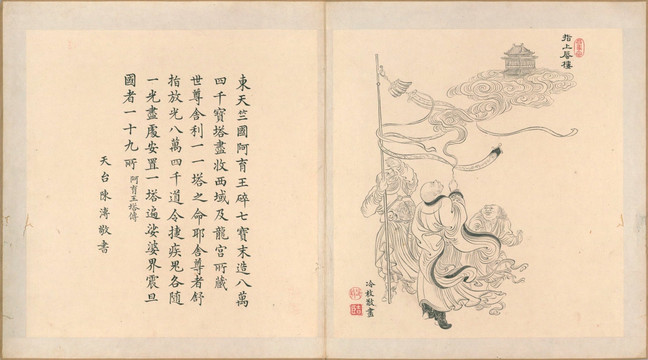 東天竺國阿育王碎七寶末造八萬
四千寶塔盡收西域及龍宮所藏
世尊舍利一一塔之命耶舍尊者舒
指放光八萬四千道令捷疾鬼各隨
一光盡處安置一塔遍娑婆界震旦
國者一十九所 阿育王塔傳
天台陳溥敬書
指上蜃樓
冷枚敬畫